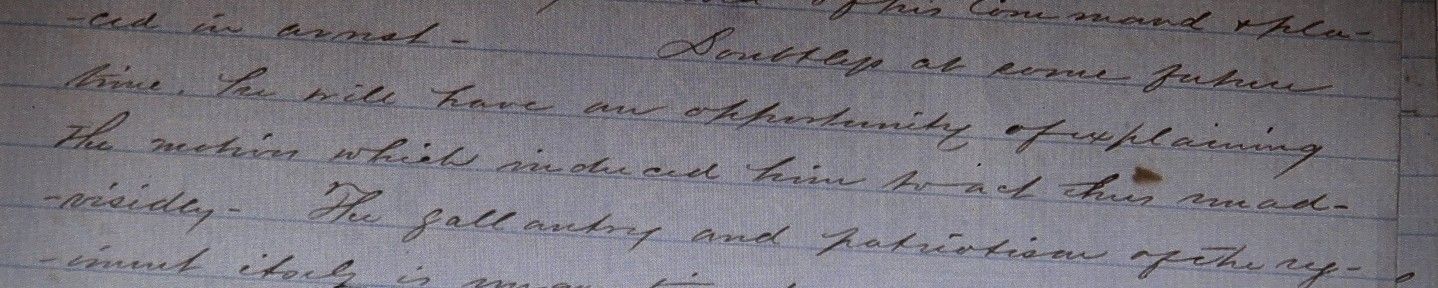 of his Command & pla-
-ced in arrest - Doubtless at some future
time, he will have an opportunity of explaining
The motives which induced him to act thus unad-
-visidly - The gallantry and patriotism of the reg-
-iment itself is